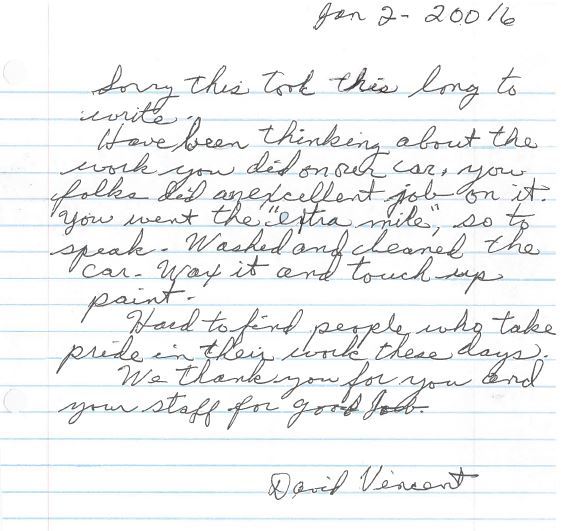 Jan 2- 20016
Sorry this took this long to
write.
Have been thinking about the
work you did on our car, you
folks did an excellent job on it.
You went the "extra mile", so to
speak. Washed and cleaned the
car. Wax it and touch up
paint.
Hard to find people who take
pride in their work these days.
We thank you for you and
your staff for good Job.
David Vincent